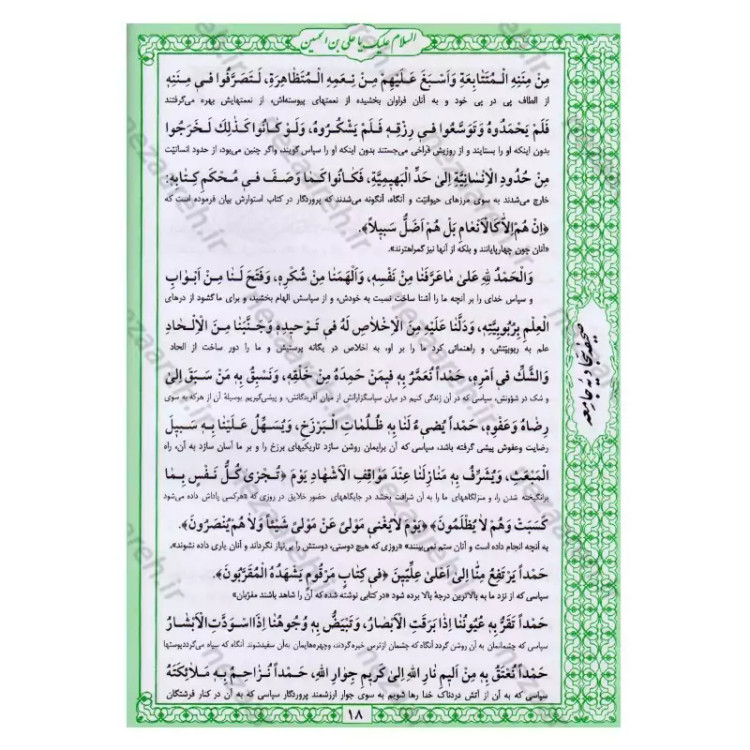 السلام علیک یا علی بن الحسین
مِنْ مِنَنِهِ الْمُتَتَابِعَةِ وَاَسْبَغَ عَلَيْهِمْ مِنْ نِعَمِهِ الْمُتَظَاهِرَةِ، لَتَصَرَّفُوا فى مِنَنِهِ
از الطاف پی در پی خود و به آنان فراوان بخشیده از نعمتهای پیوسته‌اش، از نعمتهایش بهره می‌گرفتند
فَلَمْ يَحْمَدُوهُ وَتَوَسَّعُوا فى رِزْقِهِ فَلَمْ يَشْكُرُوهُ، وَلَوْ كَانُوا كَذٰلِكَ لَخَرَجُوا
بدون اینکه او را بستایند و از روزیش فراخی می‌جستند بدون اینکه او را سپاس گویند، واگر چنین می‌بود، از حدود انسانیّت
مِنْ حُدُودِ الْاِنْسَانِيَّةِ اِلىٰ حَدِّ الْبَهِيمِيَّةِ، فَكَانُوا كَمَا وَصَفَ فى مُحْكَمِ كِتَابِهِ:
خارج می‌شدند به سوی مرزهای حیوانیّت و آنگاه، آنگونه می‌شدند که پروردگار در کتاب استوارش بیان فرموده است که
﴿اِنْ هُمْ اِلاّٰ كَالْاَنْعٰامِ بَلْ هُمْ اَضَلُّ سَبِيلاً﴾.
«آنان چون چهارپایانند و بلکه از آنها نیز گمراهترند».
وَالْحَمْدُ لِلّٰهِ عَلىٰ مٰا عَرَّفَنٰا مِنْ نَفْسِهِ، وَاَلْهَمَنٰا مِنْ شُكْرِهِ، وَفَتَحَ لَنٰا مِنْ اَبْوٰابِ
و سپاس خدای را بر آنچه ما را آشنا ساخت نسبت به خودش، و از سپاسش الهام بخشید، و برای ما گشود از درهای
الْعِلْمِ بِرُبُوبِيَّتِهِ، وَدَلَّنٰا عَلَيْهِ مِنَ الْاِخْلاٰصِ لَهُ فى تَوْحيدِهِ وَجَنَّبَنٰا مِنَ الْاِلْحٰادِ
علم به ربوبیّتش، و راهنمائی کرد ما را بر او، به اخلاص در یگانه پرستیش و ما را دور ساخت از الحاد
وَالشَّكِّ فى اَمْرِهِ، حَمْداً نُعَمَّرُ بِهِ فيمَنْ حَمِدَهُ مِنْ خَلْقِهِ، وَنَسْبِقُ بِهِ مَنْ سَبَقَ اِلىٰ
و شک در شؤونش، سپاسی که در آن زندگی کنیم در میان سپاسگزارانش از میان آفریدگانش، و پیشی‌گیریم بوسیلهٔ آن از هرکه به سوی
رِضٰاهُ وَعَفْوِهِ، حَمْداً يُضىءُ لَنٰا بِهِ ظُلُمٰاتِ الْبَرْزَخِ، وَيُسَهِّلُ عَلَيْنٰا بِهِ سَبيلَ
رضایت وعفوش پیشی گرفته باشد، سپاسی که آن برایمان روشن سازد تاریکیهای برزخ را و بر ما آسان سازد به آن، راه
الْمَبْعَثِ، وَيُشَرِّفُ بِهِ مَنٰازِلَنٰا عِنْدَ مَوٰاقِفِ الْاَشْهٰادِ يَوْمَ ﴿تُجْزىٰ كُلُّ نَفْسٍ بِمٰا
برانگیخته شدن را، و منزلگاههای ما را به آن شرافت بخشد در جایگاههای حضور خلایق در روزی که «هرکسی پاداش داده می‌شود
كَسَبَتْ وَهُمْ لاٰ يُظْلَمُونَ﴾ ﴿يَوْمَ لاٰ يُغْنى مَوْلىً عَنْ مَوْلىً شَيْئاً وَلاٰ هُمْ يُنْصَرُونَ﴾.
به آنچه انجام داده است و آنان ستم نمی‌بینند» «روزی که هیچ دوستی، دوستش را بی‌نیاز نگرداند و آنان یاری داده نشوند».
حَمْداً يَرْتَفِعُ مِنّٰا اِلىٰ اَعْلىٰ عِلِّيّينَ ﴿فى كِتٰابٍ مَرْقُومٍ يَشْهَدُهُ الْمُقَرَّبُونَ﴾.
سپاسی که از نزد ما به بالاترین درجهٔ بالا برده شود «در کتابی نوشته شده که آن را شاهد باشند مقرّبان»
حَمْداً تَقَرُّ بِهِ عُيُونُنٰا اِذٰا بَرِقَتِ الْاَبْصٰارُ، وَتَبْيَضُّ بِهِ وُجُوهُنٰا اِذَا اسْوَدَّتِ الْاَبْشٰارُ
سپاسی که چشمانمان به آن روشن گردد آنگاه که چشمان ازترس خیره گردند، وچهره‌هایمان به آن سفیدشوند آنگاه که سیاه می‌گرددپوستها
حَمْداً نُعْتَقُ بِهِ مِنْ اَليمِ نٰارِ اللهِ اِلىٰ كَريمِ جِوٰارِ اللهِ، حَمْداً نُزٰاحِمُ بِهِ مَلاٰئِكَتَهُ
سپاسی که به آن از آتش دردناک خدا رها شویم به سوی جوار ارزشمند پروردگار سپاسی که به آن در کنار فرشتگان
صحیفه سجادیه جامعه
۱۸
nezaareh.ir